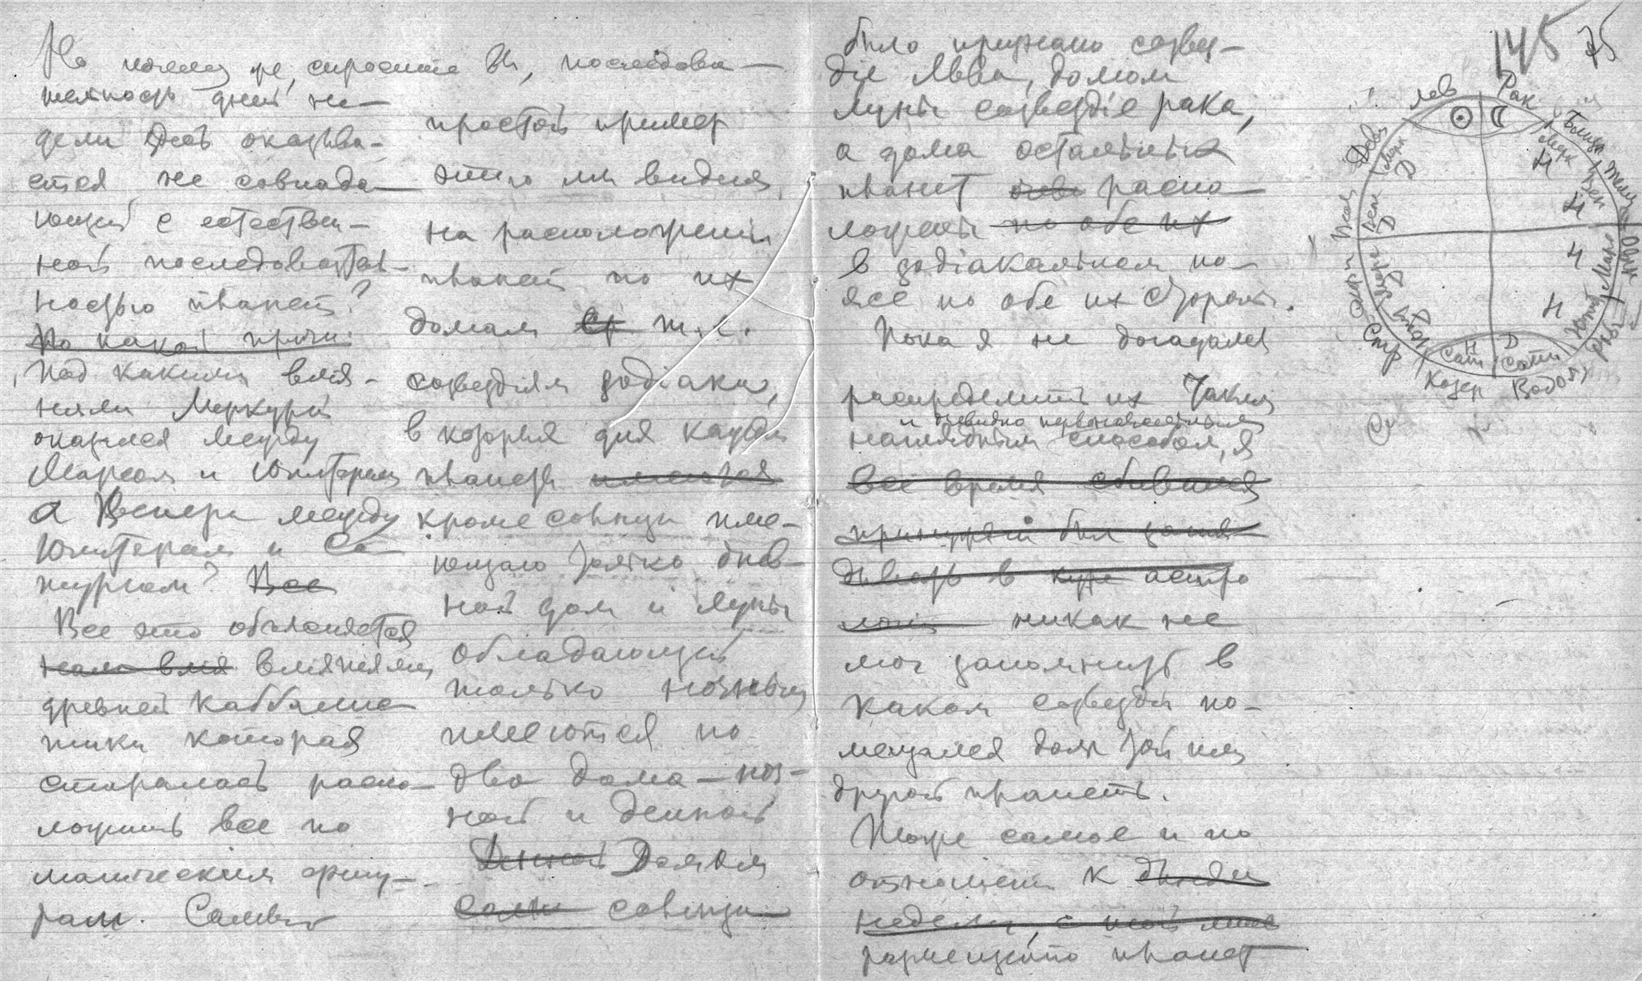 Но почему же, спросите Вы, последова-
тельность дней не-
дели здесь оказыва-
ется не совпада-
ющей с естествен-
ной последователь-
ностью планет?
По какой причи
Под каким влия-
нием Меркурий
оказался между
Марсом и Юпитером
а Венера между
Юпитером и Са-
турном? Все
Все это объясняется
влиянием
древней каббалис-
тики которая
старалась распо-
ложить все по
магическим фигу-
рам. Самый
простой пример
этого мы видим
на расположении
планет по их
домам т.е.
созвездиям зодіака,
в которых для каждой
планеты имеется
кроме солнца име-
ющаго только днев-
ной дом и луны
обладающей
только ночным
имеются по
два дома – ноч-
ной и денной
Денной Домом
солн солнца
было признано созвез-
діе Льва, домом
луны созвездіе рака,
а дома остальных
планет распо-
ложены по обе их
в зодіакальном по-
ясе по обе их стороны.
Пока я не догадался
распределить их таким
и первоначальным
наглядным способом, я
все время сбивался
принужден был
в астро
никак не
мог запомнить в
каком созвездіи по-
мещался дом той или
другой планеты.
Тоже самое и по
отношению к
недели, с
размещению планет
145 75
Лев Рак
Близн
Дева
Мерк
Д
Мерк
Н
Телец
Вен
Н
Вен
Д
Овен
Марс
Н
Марс
Д
Рыбы
Юпит
Н
Стр
Юпит
Д
Н Д
Сат Сатн
Козер Водол